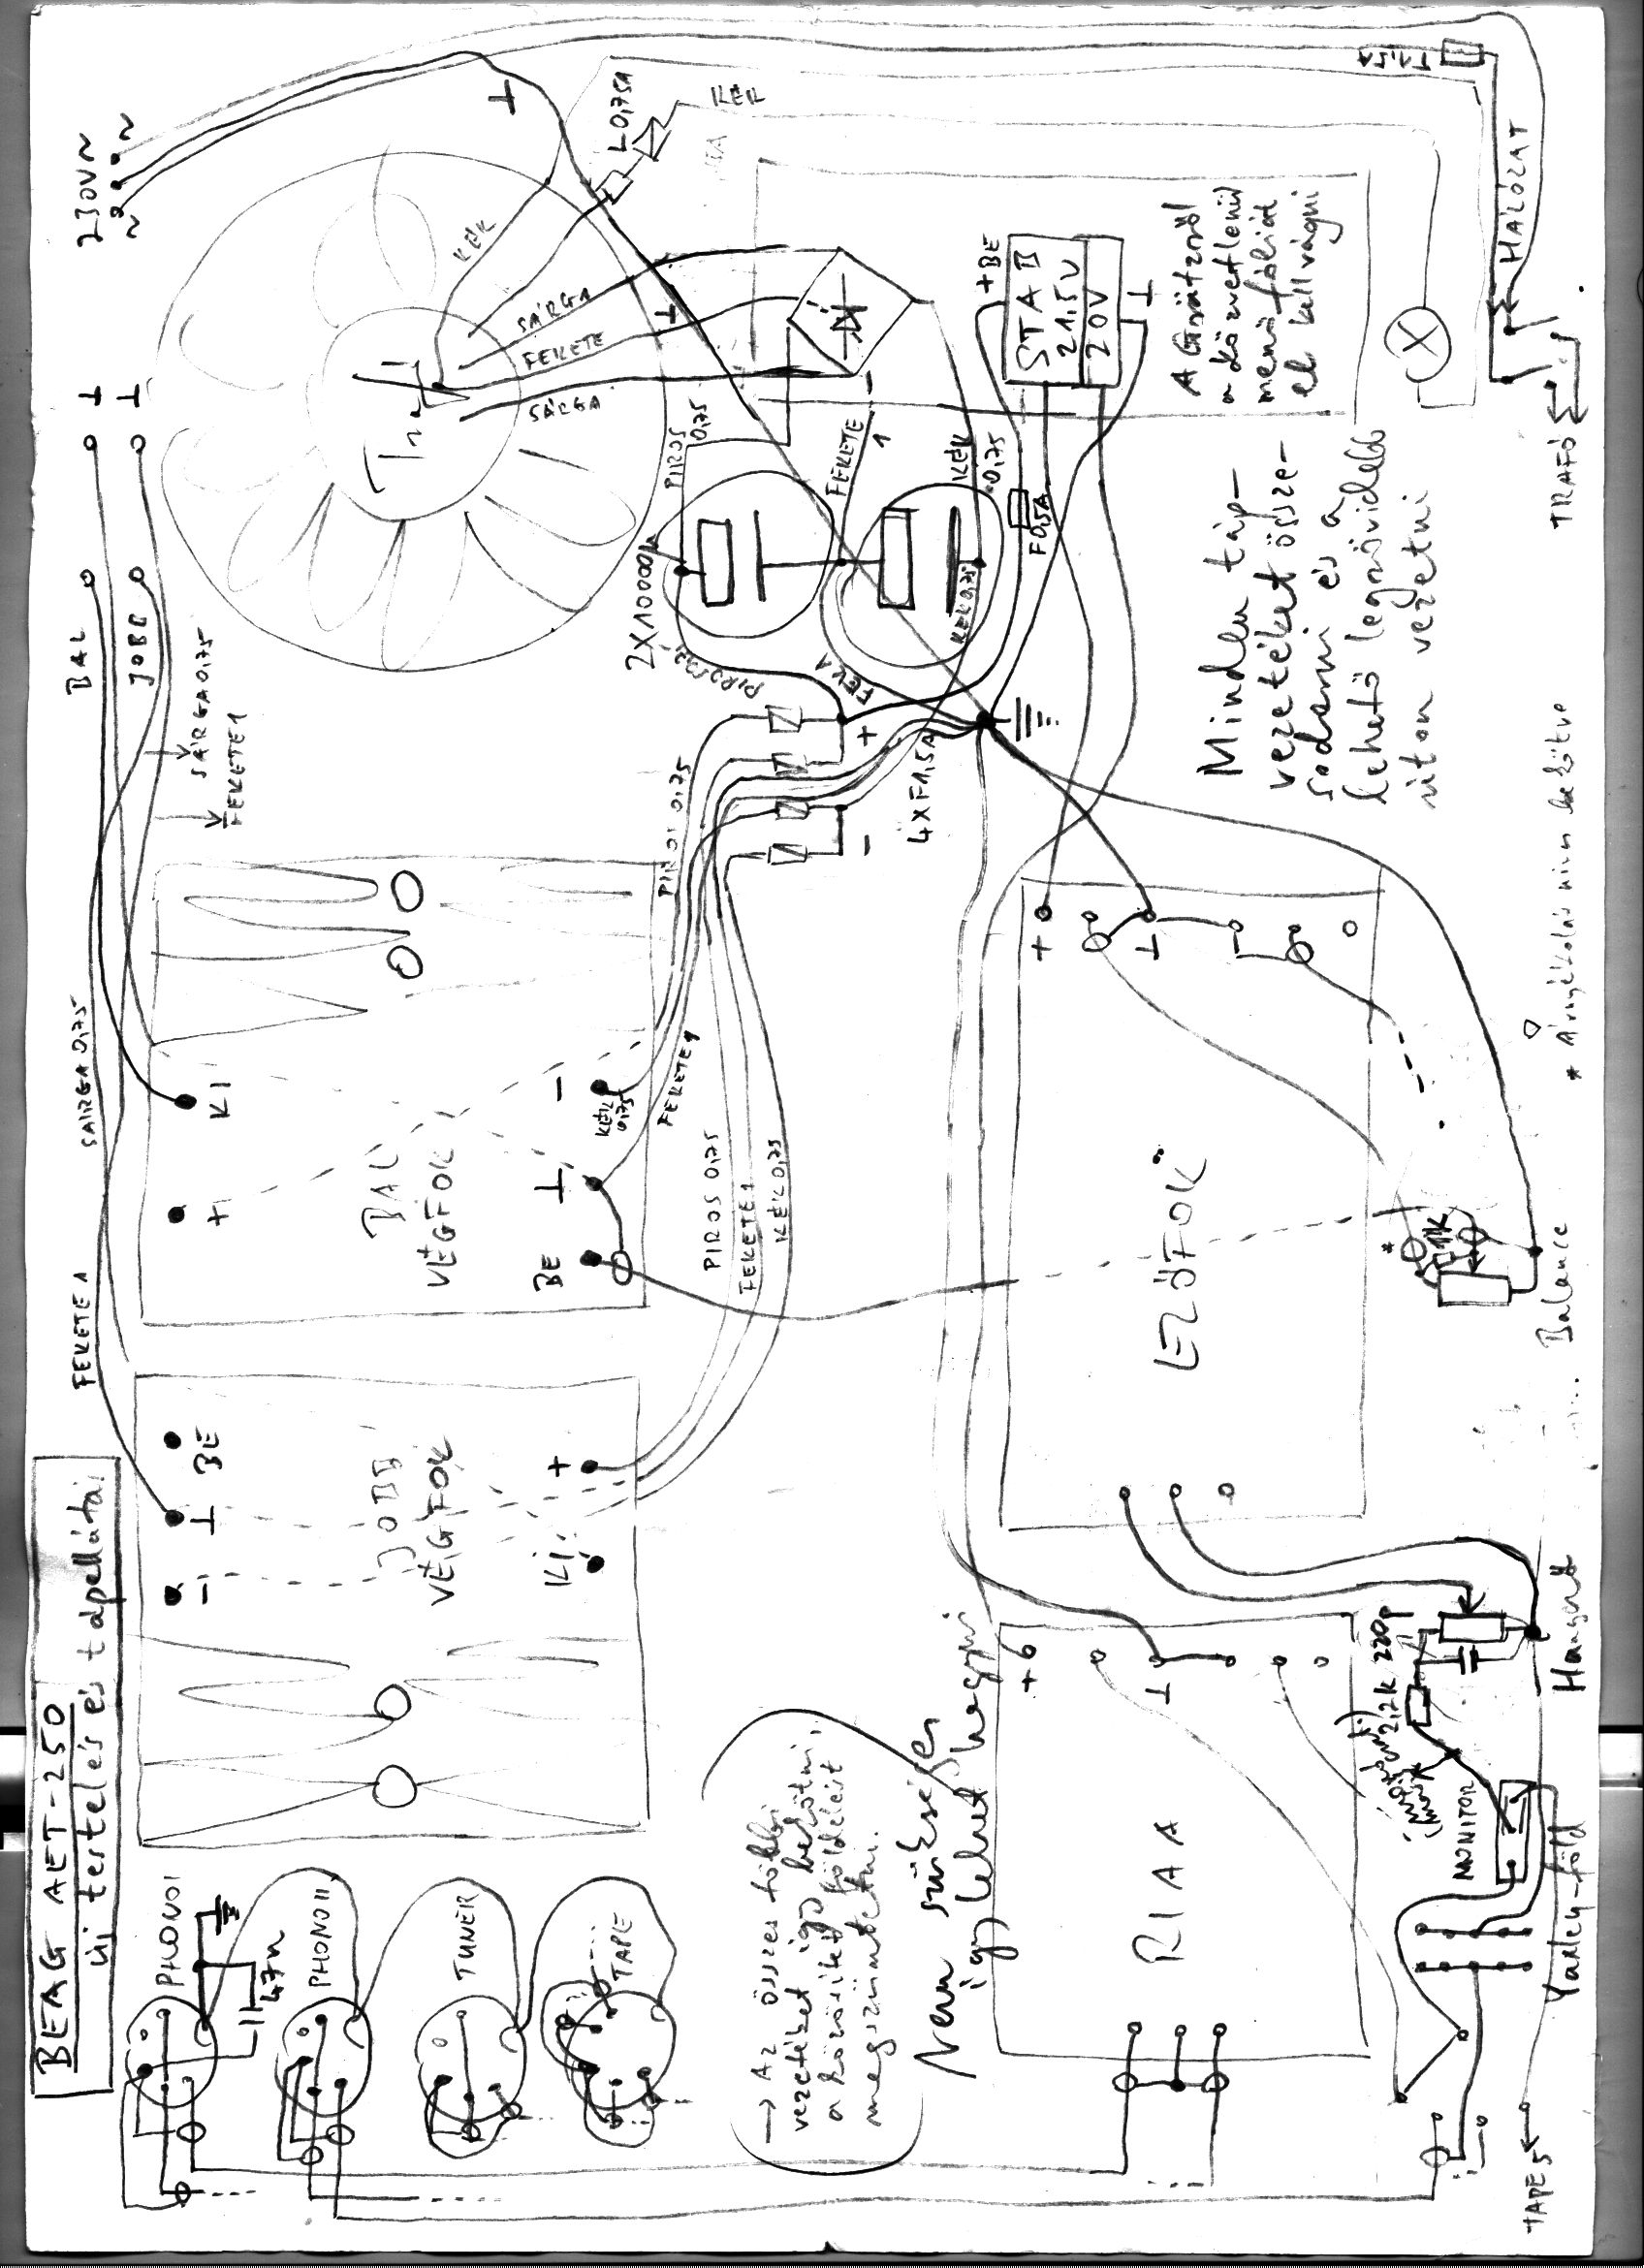 BEAG AET-250
új testelés és tápellátás
PHONO I
47n
PHONO II
TUNER
TAPE
FEKETE 1
SÁRGA 0,75
BE
⊥
-
JOBB
VÉGFOK
KI
+
KI
+
BAL
VÉGFOK
BE
⊥
-
KÉK
0,75
FEKETE 1
PIROS 0,75
FEKETE 1
KÉK 0,75
SÁRGA 0,75
FEKETE 1
BAL
JOBB
⊥
⊥
230V~
~
~
⊥
Tr.
KÉK
SÁRGA
FEKETE
SÁRGA
⊥
L0,75A
KÉK
T1,5A
PIROS
0,75
FEKETE
1
KÉK
0,75
2X10000µ
PIROS 0,75
FEK 1
KÉK 0,75
PIROS 0,75
+
-
4XF1,5A
F0,5A
+BE
STAB
21,5V
20V
⊥
A Graetzről
a közvetlenül
menő fóliát
el kell vágni
Minden táp-
vezetéket össze-
sodorni és a
lehető legrövidebb
úton vezetni
HÁLÓZAT
TRAFÓ
* Árnyékolás nincs bekötve
+
⊥
-
ELŐFOK
*
11K
Balance
→ Az összes többi
vezetéket így bekötni,
a közösített földeléit
megszüntetni.
Nem szükséges
így lehet hagyni
+6
⊥
RIAA
220p
2,2k
Hangerő
MONITOR
Yaxley-föld
TAPE 5